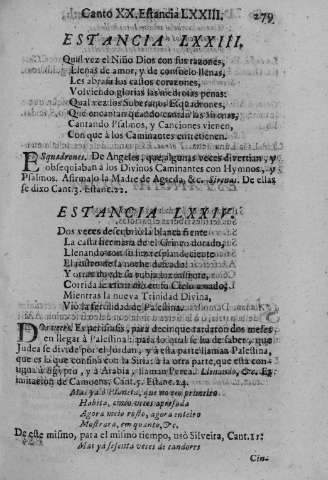 Canto XX. Estancia LXXIII. 279
ESTANCIA LXXIII.
Qual vez el Niño Dios con sus razones,
Llenas de amor, y de consuelo llenas,
Les abrasa los castos corazones,
Volviendo glorias las penas:
Qual vez los Soberanos Esquadrones,
Que encantan quando cantan las Sirenas,
Cantando Psalmos, y Canciones vienen,
Con que à los Caminantes entretienen.
Esquadrones. De Angeles, que algunas veces divertian, y
obsequiaban à los Divinos Caminantes con Hymnos, y
Psalmos. Afirmalo la Madre de Agreda, &c. Sirenas. De ellas
se dixo Cant. 3. Estanc. 22.
ESTANCIA LXXIV.
Dos veces descubriò la blanca frente
La casta hermana de el Crinero dorado,
Llenando con su luz resplandeciente
El rostro de la noche
Y otras
Corrida se
Mientras la nueva Trinidad Divina,
Viò la felicidad de Palestina.
Dos veces. Es perifrasis, para decir que tardaron dos meses
en llegar à Palestina: para lo qual se ha de saber, que
Judea se divide por el Jordan, y à esta parte llaman Palestina,
que es la que confina con la Siria: à la otra parte, que està con-
tigua à Egypto, y à Arabia, llaman Perea. Llenando, &c. Es
imitacion de Camoens, Cant. 5. Estanc. 24.
Mas ya o Planeta, que no ceo primeiro
Habita, cinco veces apresada
Agora meio rosto, agora inteiro
Mostrara, em quanto, &c.
De este mismo, para el mismo tiempo, usò Silveira, Cant. 11:
Mas ya sesenta veces de candores
Cin-